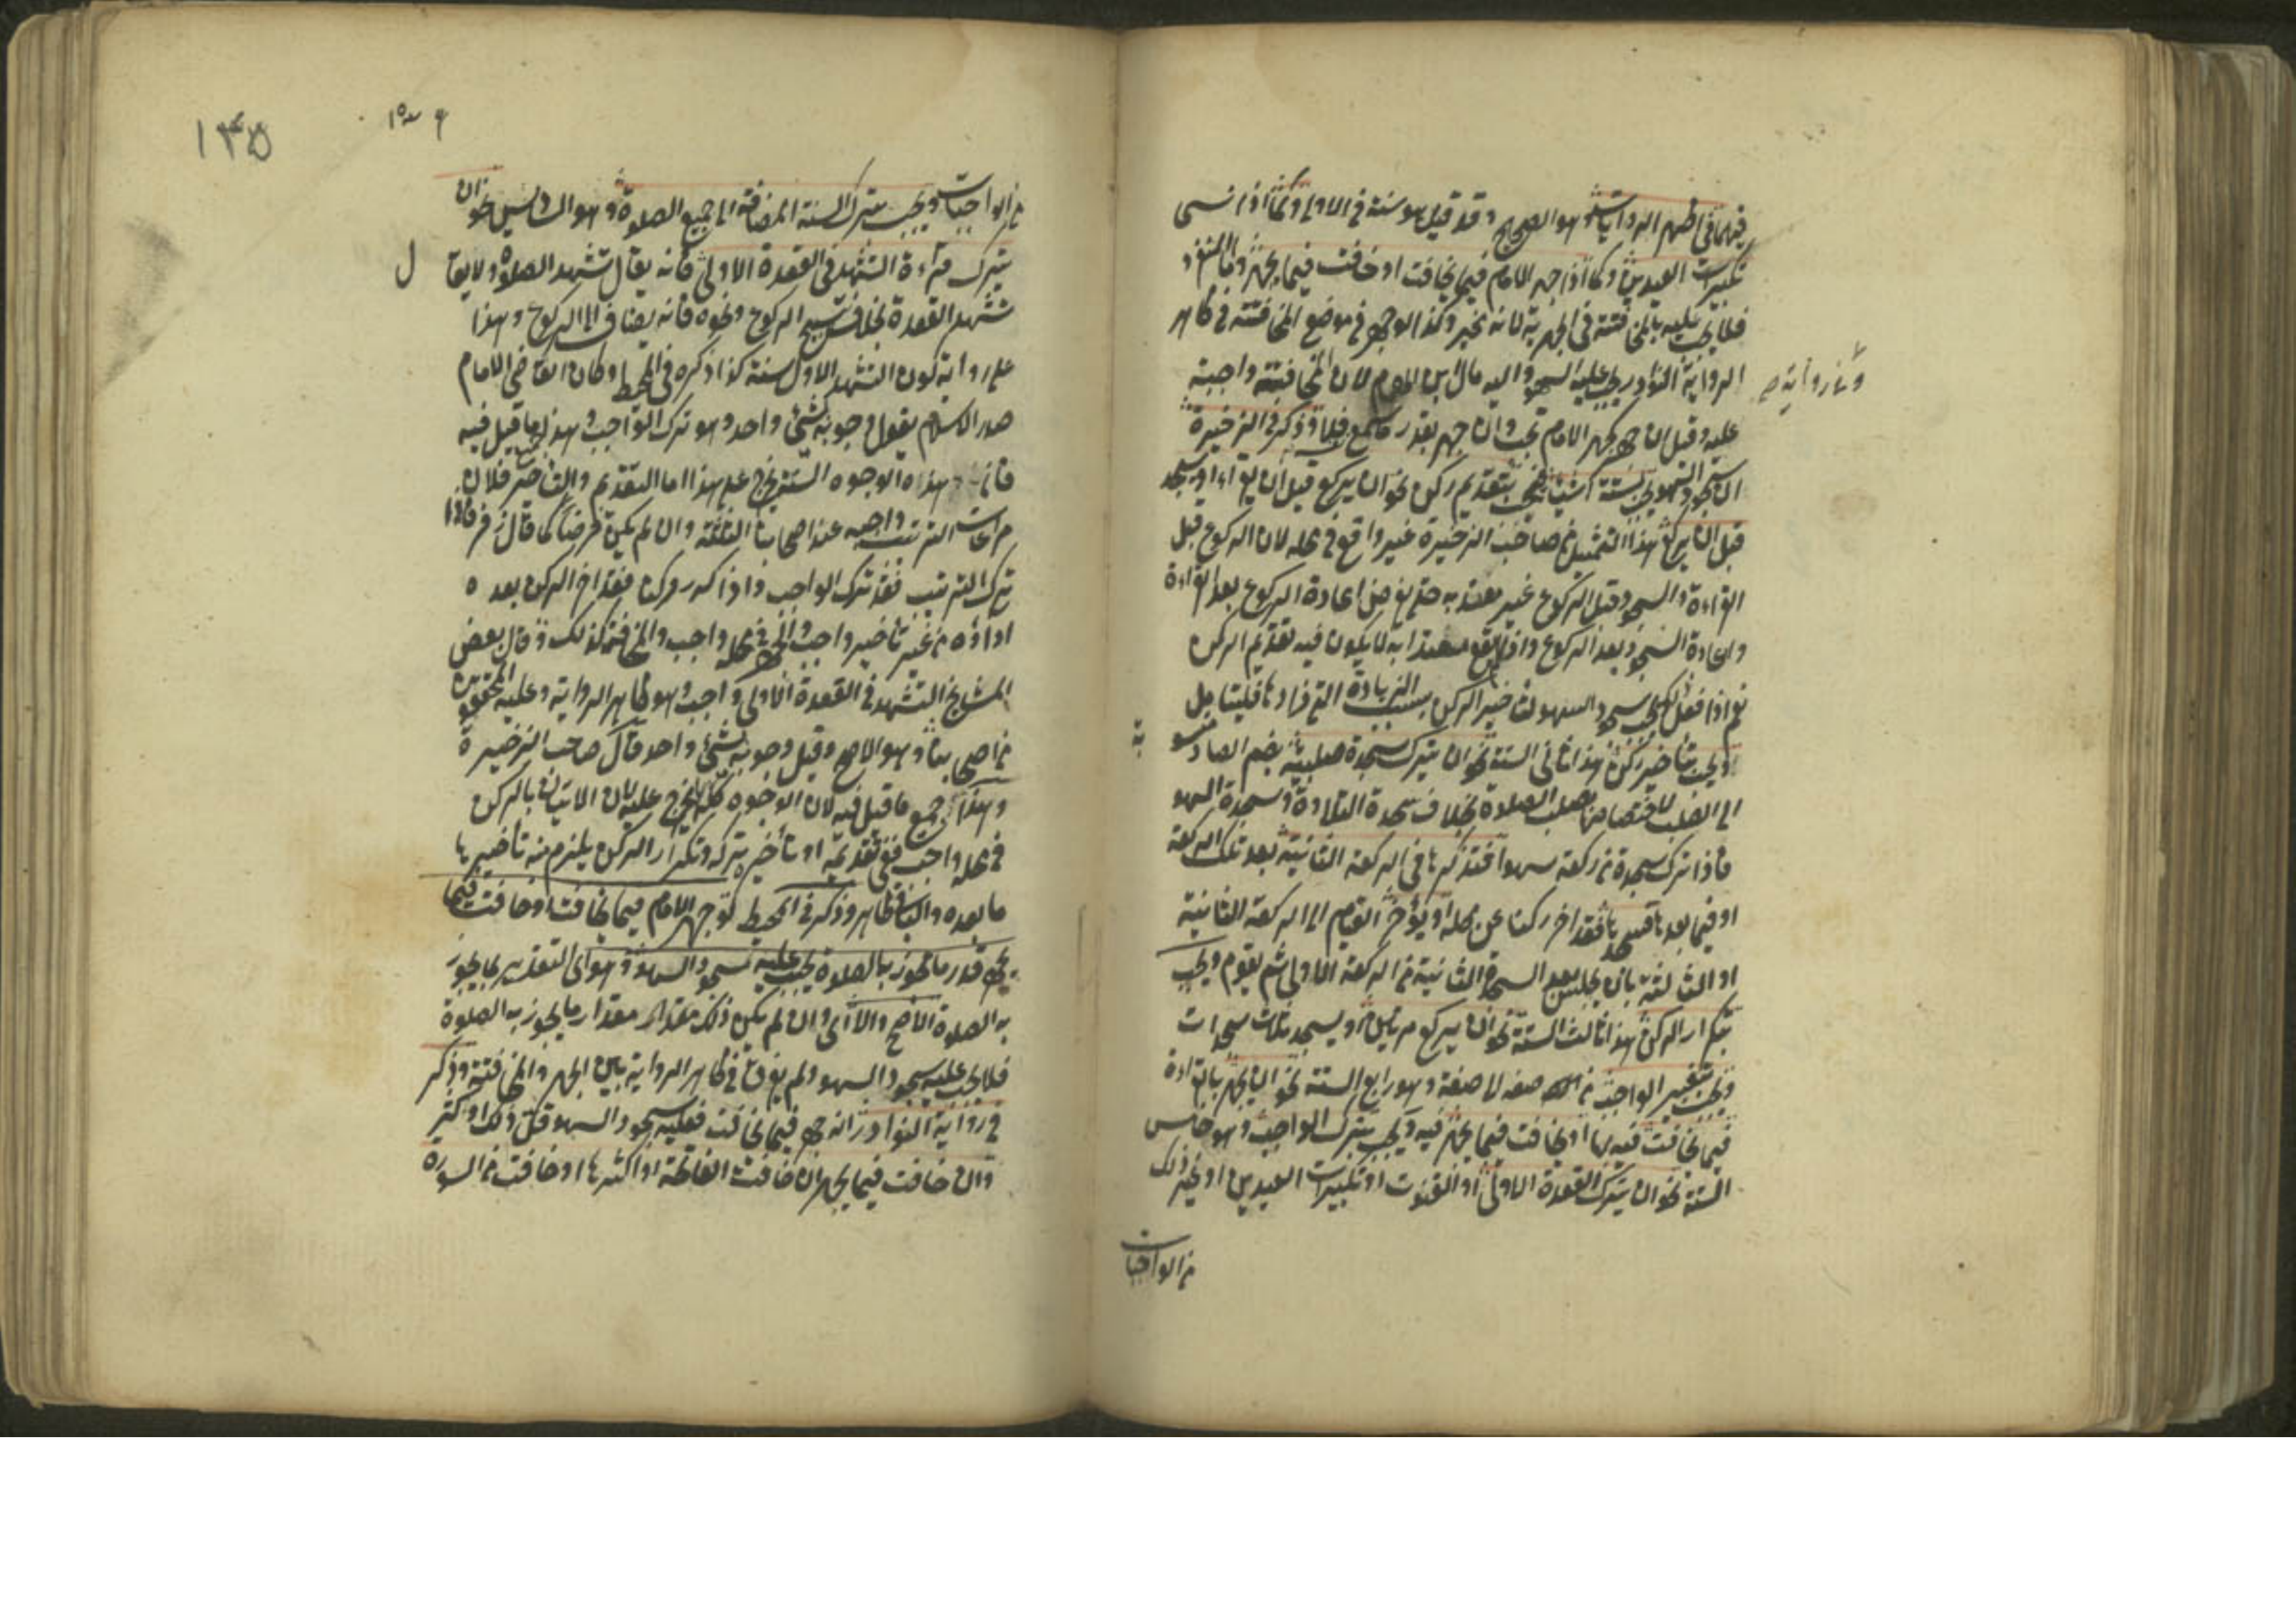 فيهما في اظهر الروايات وهو الصحيح وقد قيل هو سنة في الاولى وكما اذا نسى
تكبيرت العيدين وكما اذا جهر الامام فيما يخافت او خافت فيما يجهر واما المنفرد
فلا يجب عليه بالمخافتة في الجهرية لانه مخير وكذا لو جهر في موضع المخافتة في ظاهر
الرواية النوادر يجب عليه السهو واليه مال ابن الهمام لان المخافتة واجبة
وفي رواية صح
عليه وقيل ان جهر كجهر الامام تجب وان جهر بقدر ما يسمع فلا وذكر في الذخيرة
ان سجود السهو يجب بستة اشياء يجب بتقديم ركن نحو ان يركع قبل ان يقرأ او يسجد
قبل ان يركع هذا التمثيل من صاحب الذخيرة غير واقع في محله لان الركوع قبل
القراءة والسجود قبل الركوع غير معتد به حتى يفرض اعادة الركوع بعد القراءة
واعادة السجود بعد الركوع واذا لم يقع معتدا به لا يكون فيه تقديم الركن
نعم اذا فعل يجب سجود السهو لتأخير الركن بسبب الزيادة التي زادها فليتأمل
ويجب بتأخير ركن هذا ثاني الستة نحو ان يترك سجدة صلبية بضم الصاد منسوبة
الى الصلب لاختصاصها بصلب الصلوة بخلاف سجدة التلاوة وسجدة السهو
فاذا ترك سجدة من ركعة سهوا فتذكرها في الركعة الثانية بعد تلك الركعة
او فيما بعدها فسجدها فقد اخر ركنا عن محله او يؤخر القيام الى الركعة الثانية
او الثالثة بان يجلس بعد السجدة الثانية من الركعة الاولى ثم يقوم ويجب
بتكرار الركن هذا ثالث الستة نحو ان يركع مرتين او يسجد ثلاث سجدات
ويجب بتغيير الواجب من صفة الى صفة وهو رابع الستة نحو ان يجهر بالقراءة
فيما يخافت فيه بها او يخافت فيما يجهر فيه ويجب بترك الواجب وهو خامس
الستة نحو ان يترك القعدة الاولى او القنوت او تكبيرات العيدين او غير ذلك
من الواجبات
١٣٥
من الواجبات ويجب بترك السنة المضافة الى جميع الصلوة وهو السادس نحو ان
يترك قراءة التشهد في القعدة الاولى فانه يقال تشهد الصلوة ولا يقال
تشهد القعدة بخلاف تسبيح الركوع ونحوه فانه يضاف الى الركوع وهذا
على رواية كون التشهد الاول سنة كذا ذكره في المحيط وكان القاضي الامام
صدر الاسلام يقول وجوبه بشئ واحد وهو ترك الواجب وهذا اجمع ما قيل فيه
فان هذه الوجوه الستة يخرج على هذا اما التقديم والتأخير فلان
مراعات الترتيب واجبه عند اصحابنا الثلثة وان لم يكن فرضا كما قال زفر فاذا
ترك الترتيب فقد ترك الواجب واذا كرر ركنا فقد اخر الركن بعده
اداؤه من غير تأخير واجب والجهر في محله واجب والمخافتة كذلك وقال بعض
المشايخ التشهد في القعدة الاولى واجب وهو ظاهر الرواية وعليه المحققون
من اصحابنا وهو الاصح وقيل وجوبه بشئ واحد قال صاحب الذخيرة
وهذا اجمع ما قيل فيه لان الوجوه كلها يخرج عليه لان الاتيان بالركن
في محله واجب ففي تقديمه او تأخيره تركه وتكرار الركن يلزم منه تأخير ها
ما بعده والباقي ظاهر وذكر في المحيط لو جهر الامام فيما يخافت او خافت فيما
يجهر قدر ما تجوز به الصلوة يجب عليه سجود السهو وهو اي التقدير بما يجوز
به الصلوة الاصح والا اي وان لم يكن ذلك مقدار ما يجوز به الصلوة
فلا يجب عليه سجود السهو ولم يفرق في ظاهر الرواية بين الجهر والمخافتة وذكر
في رواية النوادر انه جهر فيما يخافت فعليه سجود السهو قل ذلك او كثر
وان خافت فيما يجهر ان خافت الفاتحة او اكثرها او خافت من السورة